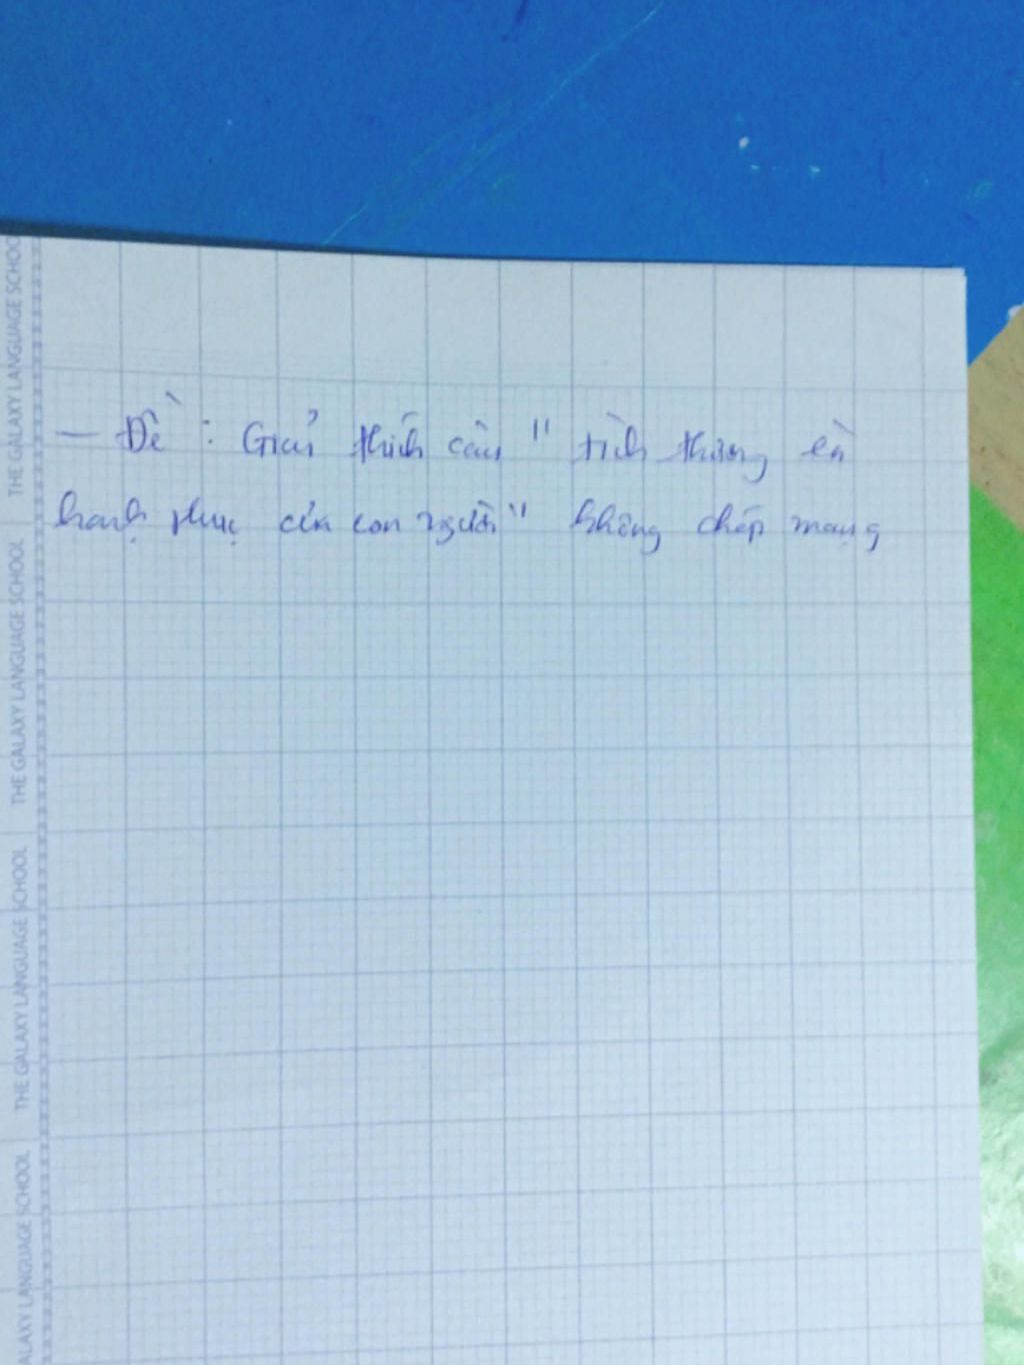 — Đề : Giải thích câu " tình thương là
hạnh phúc của con người " không chép mạng
THE GALAXY LANGUAGE SCHOOL
THE GALAXY LANGUAGE SCHOOL
THE GALAXY LANGUAGE SCHOOL
ALAXY LANGUAGE SCHOOL